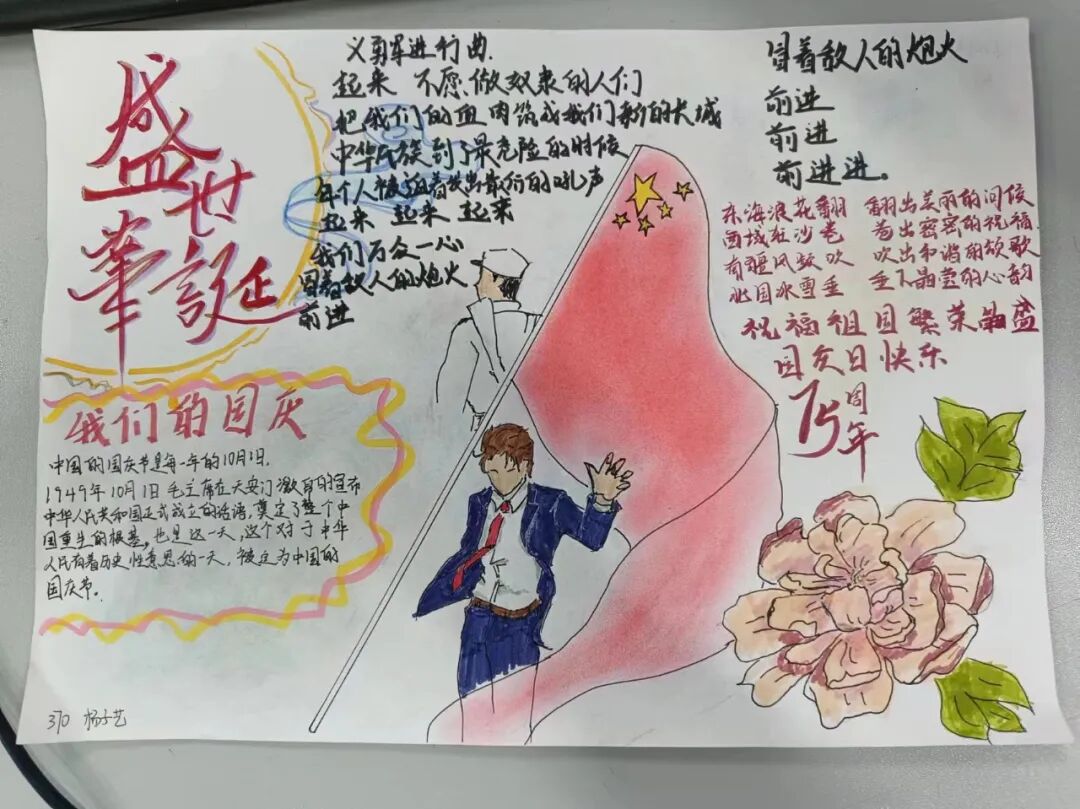 盛世華誕
义勇军进行曲.
起来 不愿做奴隶的人们
把我们的血肉筑成我们新的长城
中华民族到了最危险的时候
每个人被迫着发出最后的吼声
起来 起来 起来
我们万众一心
冒着敌人的炮火
前进
冒着敌人的炮火
前进
前进
前进进。
东海浪花翻 翻出美丽的问候
西域红沙卷 卷出密密的祝福
南疆风频吹 吹出和谐的颂歌
北国冰雪垂 垂下晶莹的心韵
祝福祖国繁荣昌盛
国庆日快乐
75周年
我们的国庆
中国的国庆节是每一年的10月1日.
1949年10月1日毛主席在天安门激昂的宣布
中华人民共和国正式成立的话语,奠定了整个中
国重生的根基,也是这一天,这个对于中华
人民有着历史性意思的一天,被定为中国的
国庆节。
370 杨子艺